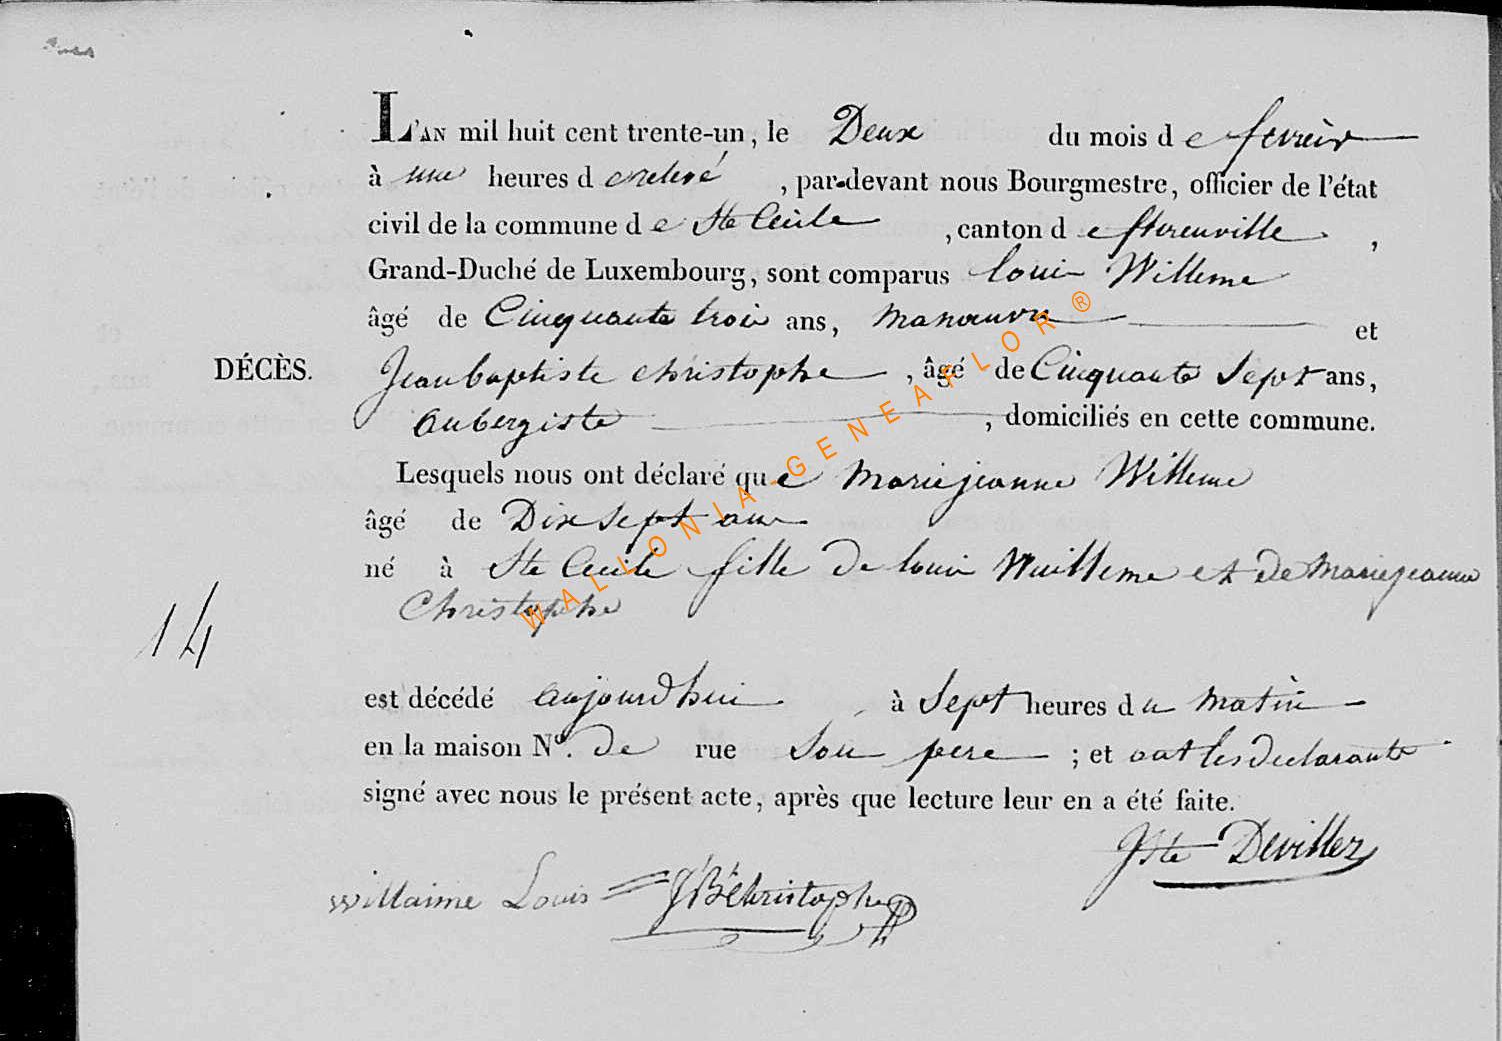 L'AN mil huit cent trente-un, le Deux du mois de fevrier
à une heures de relevé, par-devant nous Bourgmestre, officier de l'état
civil de la commune de Ste Cecile, canton d'
Grand-Duché de Luxembourg, sont comparus Louis Willeme
âgé de Cinquante trois ans, manoeuvre et
DÉCÈS. Jean baptiste christophe, âgé de Cinquante Sept ans,
aubergiste, domiciliés en cette commune.
Lesquels nous ont déclaré que Marie jeanne Willeme
âgé de Dix sept ans
né à Ste Cecile fille de Louis Willeme et de Marie jeanne
Christophe
14
est décédé aujourdhui à Sept heures du matin
en la maison No. de rue Son pere; et ont les declarants
signé avec nous le présent acte, après que lecture leur en a été faite.
Jste Devillez
Willaime Louis JB Christophe
WALLONIA-GENEAFLOR®